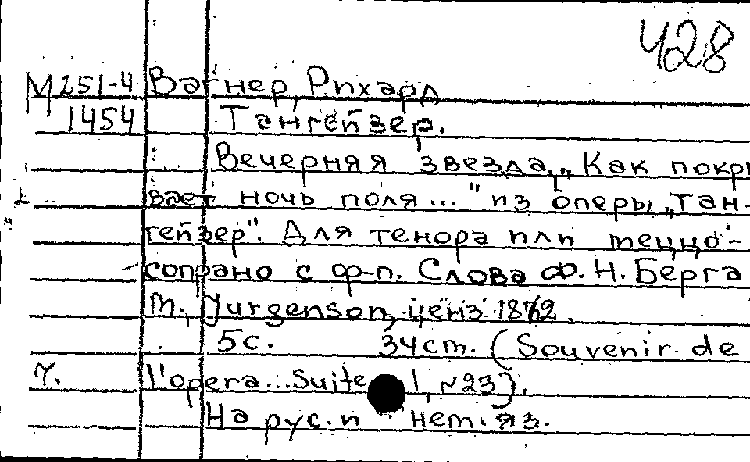 428
М251-4 Вагнер, Рихард
1454 Тангейзер.
Вечерняя звезда. „Как покры
вает ночь поля..." из оперы „Тан-
гейзер". Для тенора или меццо-
сопрано с ф-п. Слова Ф. Н. Берга
М., Jurgenson, ценз 1872.
5с. 34cm. (Souvenir de
7. l'opera... Suite 1, №23).
На рус. и нем. яз.